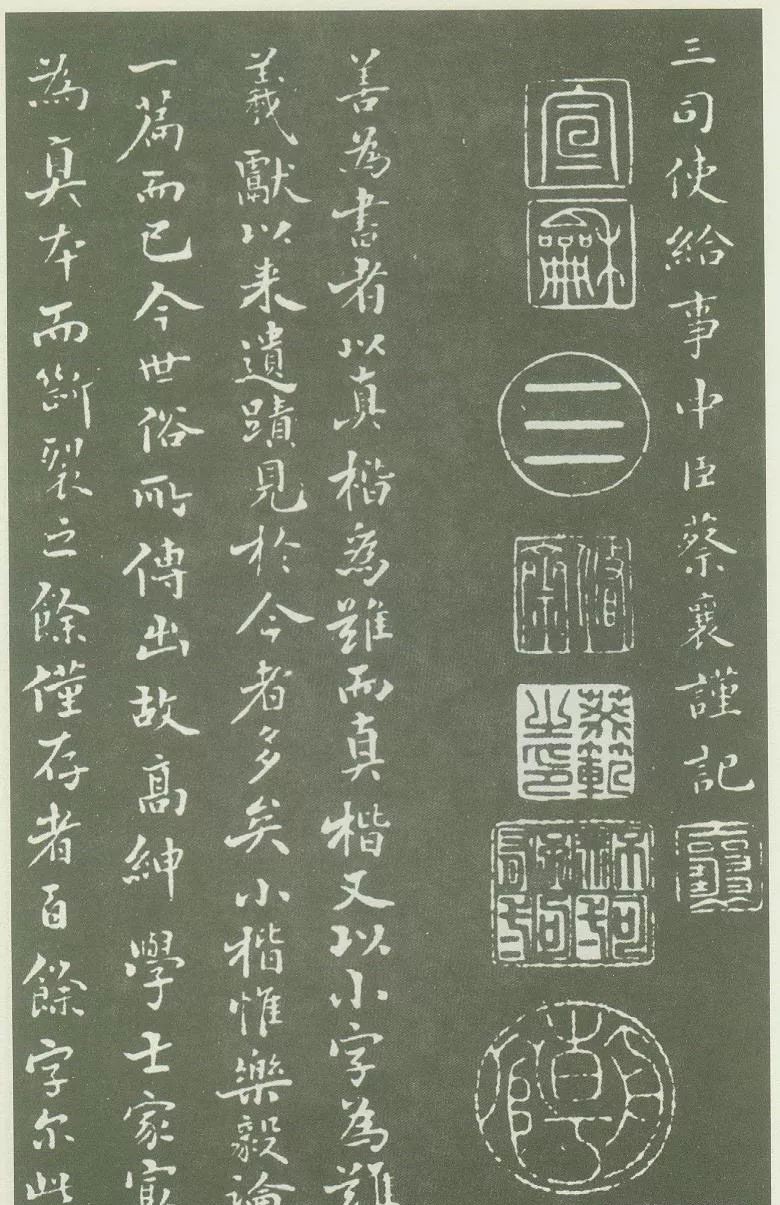 三司使給事中臣蔡襄謹記
宣
龢
蔡範
之印
善為書者以真楷為難而真楷又以小字為難
羲獻以来遺蹟見於今者多矣小楷惟樂毅論
一篇而已今世俗所傳出故高紳學士家寂
為真本而斷裂之餘僅存者百餘字尔此